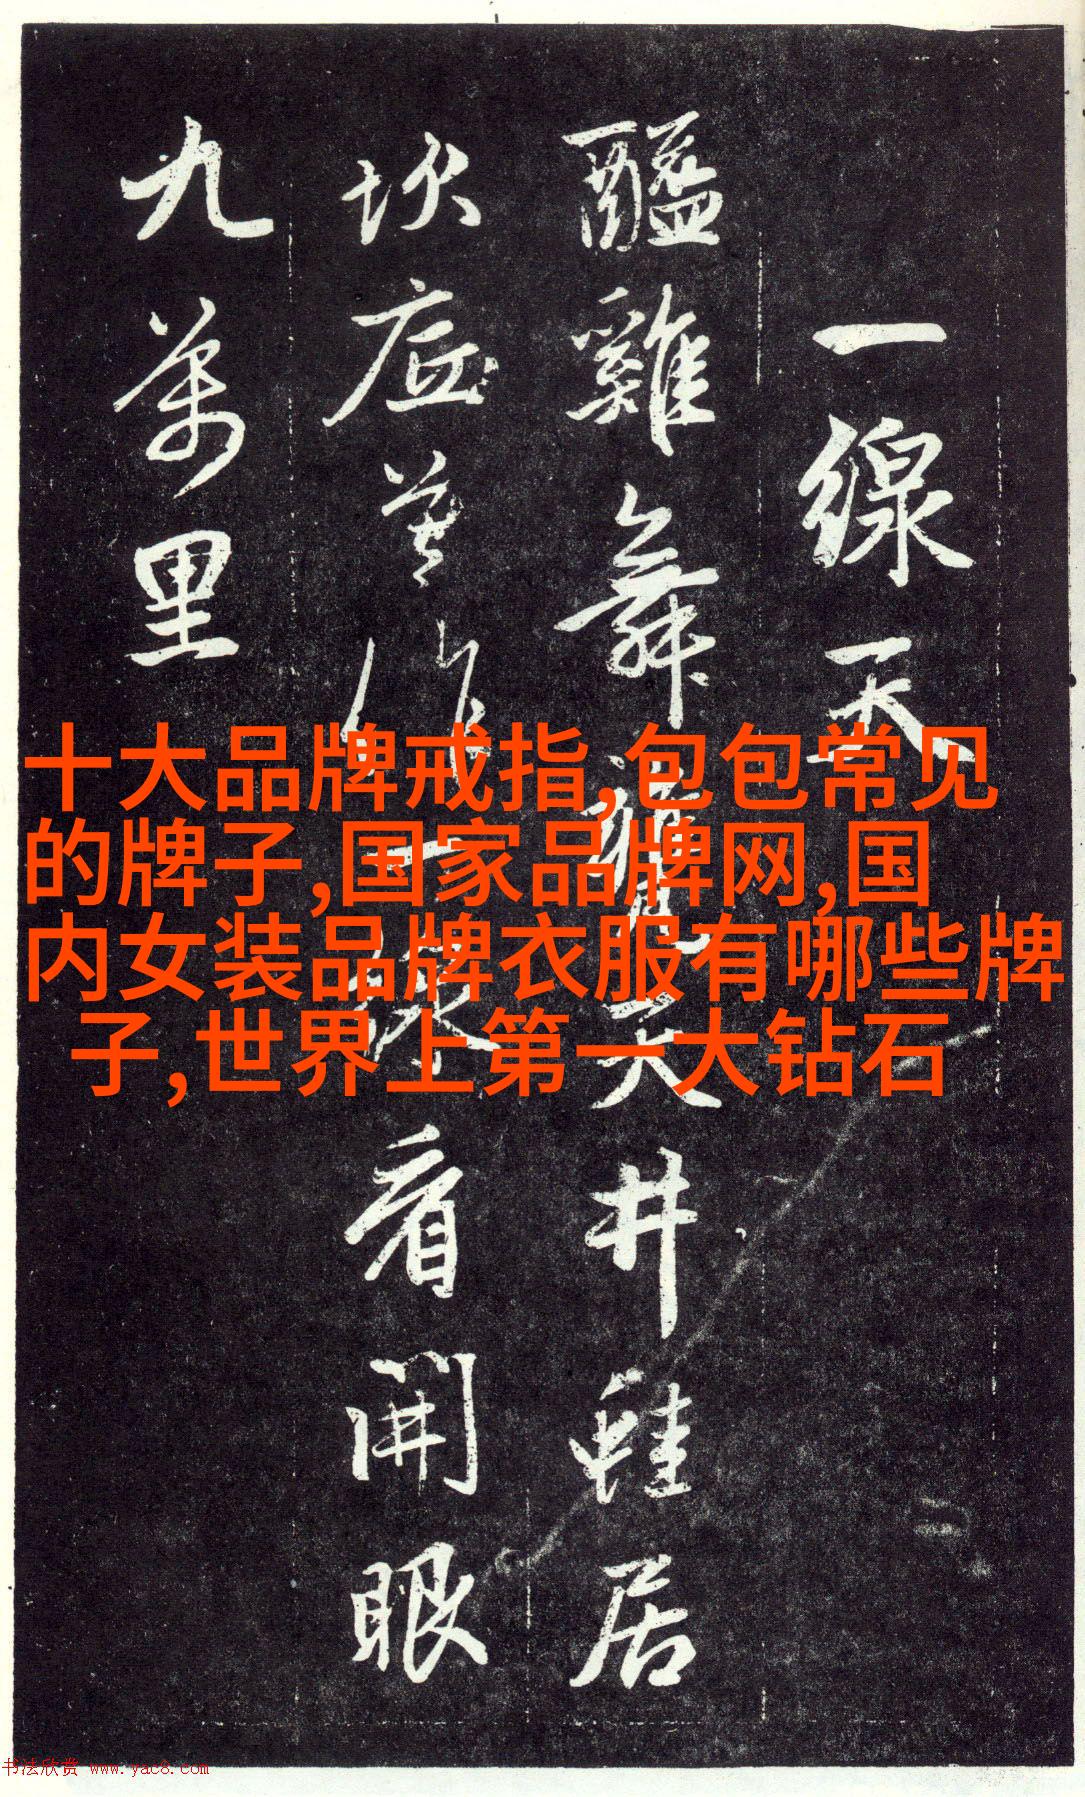 一線天
醯雞舞甕天井蛙居
坎底莫作一線看開眼
九萬里
十大品牌戒指,包包常见
的牌子,国家品牌网,国
内女装品牌衣服有哪些牌
子,世界上第一大钻石
书法欣赏 www.yac8.com